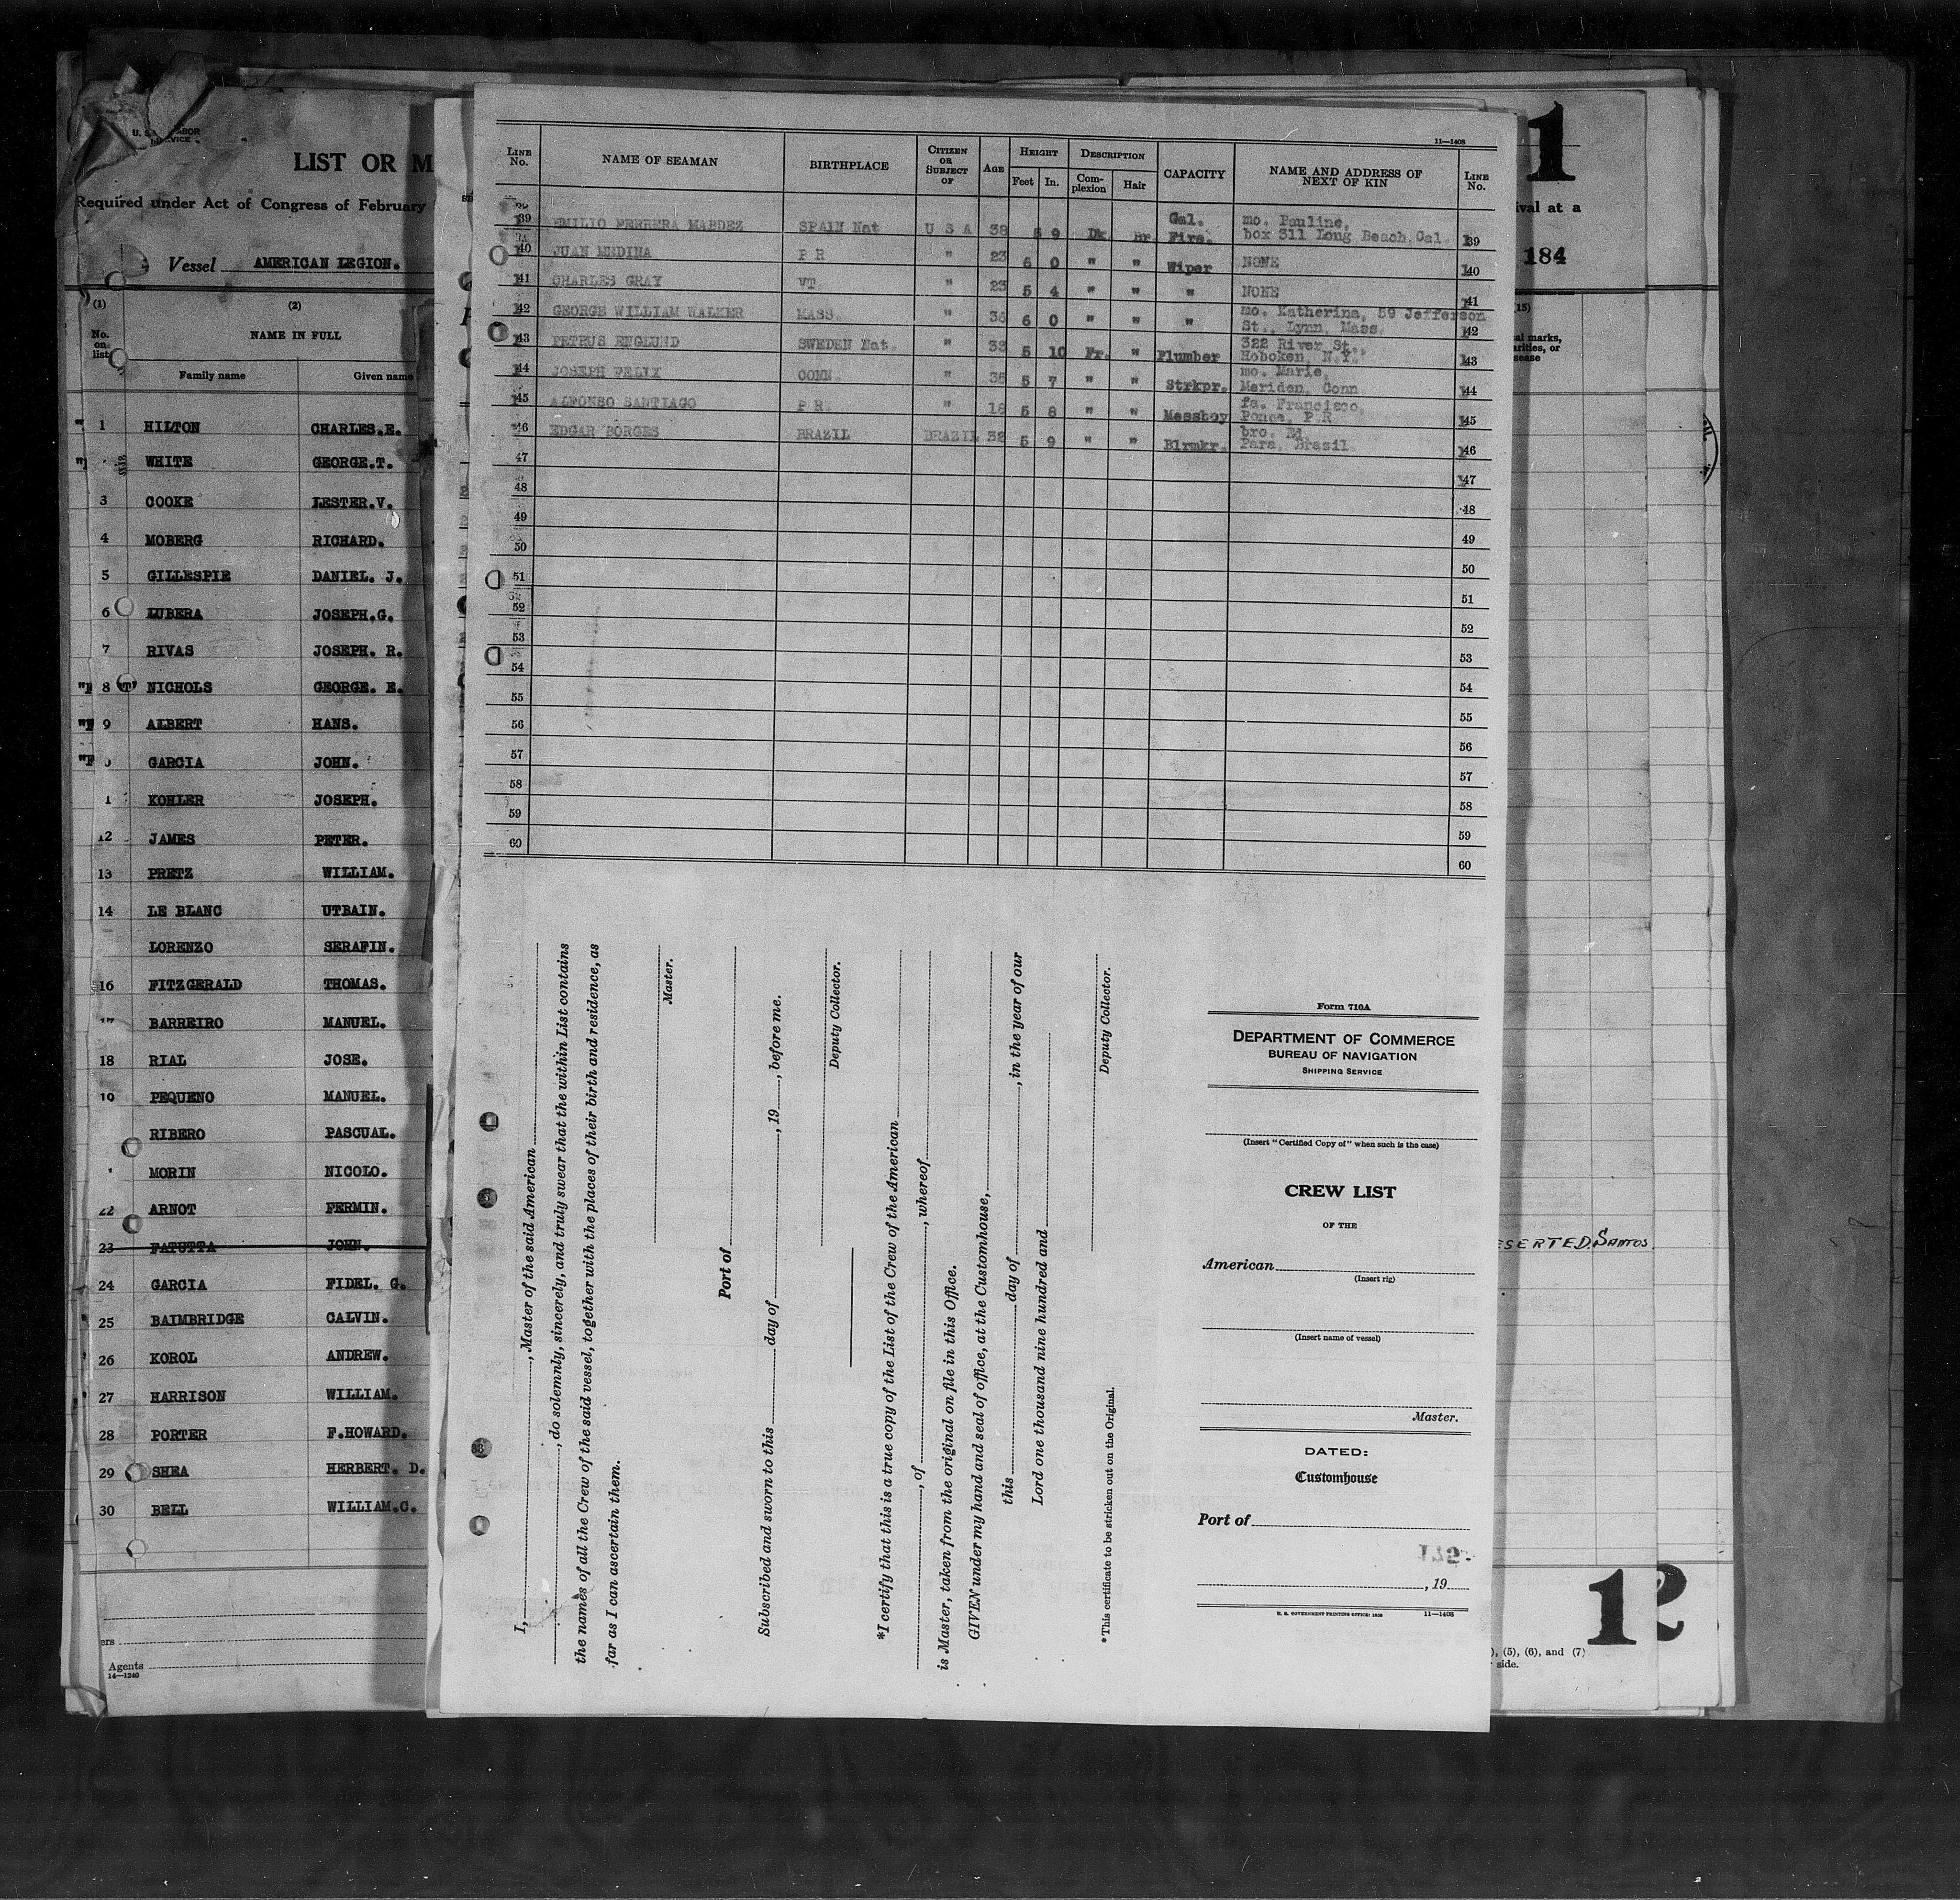 LIST OR M
Required under Act of Congress of February
Vessel AMERICAN LEGION.
(1) (2)
No. on list NAME IN FULL
Family name Given name
1 HILTON CHARLES.E.
WHITE GEORGE.T.
3 COOKE LESTER.V.
4 MOBERG RICHARD.
5 GILLESPIE DANIEL. J.
6 LUBERA JOSEPH.G.
7 RIVAS JOSEPH. R.
8 NICHOLS GEORGE. E.
9 ALBERT HANS.
GARCIA JOHN.
1 KOHLER JOSEPH.
12 JAMES PETER.
13 PRETZ WILLIAM.
14 LE BLANC UTBAIN.
LORENZO SERAFIN.
16 FITZGERALD THOMAS.
BARREIRO MANUEL.
18 RIAL JOSE.
PEQUENO MANUEL.
RIBERO PASCUAL.
MORIN NICOLO.
22 ARNOT FERMIN.
23 FATUTTA JOHN.
24 GARCIA FIDEL. G.
25 BAIMBRIDGE CALVIN.
26 KOROL ANDREW.
27 HARRISON WILLIAM.
28 PORTER F.HOWARD.
29 SHEA HERBERT. D.
30 BELL WILLIAM.C.
ers
Agents
14—1240
11—1408
LINE No. NAME OF SEAMAN BIRTHPLACE CITIZEN OR SUBJECT OF AGE HEIGHT Feet In. DESCRIPTION Complexion Hair CAPACITY NAME AND ADDRESS OF NEXT OF KIN LINE No.
139 EMILIO FERRERA MABDEZ SPAIN Nat U S A 38 5 9 Dk. Br. Gal. Fire. mo. Pauline, box 311 Long Beach, Cal. 139
140 JUAN MEDINA P R " 23 6 0 " " Wiper NONE 140
141 CHARLES GRAY VT. " 23 5 4 " " " NONE 141
142 GEORGE WILLIAM WALKER MASS. " 36 6 0 " " " mo. Katherina, 59 Jefferson St., Lynn, Mass. 142
143 PETRUS ENGLUND SWEDEN Nat. " 33 5 10 Fr. " Plumber 322 River St., Hoboken, N.Y. 143
144 JOSEPH FELIX CONN. " 35 5 7 " " Strkpr. mo. Marie, Meriden, Conn 144
145 ALFONSO SANTIAGO P R. " 18 5 8 " " Messboy fa. Francisco, Ponce, P.R 145
146 EDGAR BORGES BRAZIL BRAZIL 32 5 9 " " Blrmkr. bro. Ed. Para, Brasil 146
47 147
48 48
49 49
50 50
51 51
52 52
53 53
54 54
55 55
56 56
57 57
58 58
59 59
60 60
I, , Master of the said American
, do solemnly, sincerely, and truly swear that the within List contains
the names of all the Crew of the said vessel, together with the places of their birth and residence, as
far as I can ascertain them.
Master.
Port of
Subscribed and sworn to this day of , 19 , before me.
Deputy Collector.
*I certify that this is a true copy of the List of the Crew of the American
, of , whereof
is Master, taken from the original on file in this Office.
GIVEN under my hand and seal of office, at the Customhouse,
this day of , in the year of our
Lord one thousand nine hundred and
Deputy Collector.
*This certificate to be stricken out on the Original.
Form 710A
DEPARTMENT OF COMMERCE
BUREAU OF NAVIGATION
SHIPPING SERVICE
(Insert "Certified Copy of" when such is the case)
CREW LIST
OF THE
American
(Insert rig)
(Insert name of vessel)
Master.
DATED:
Customhouse
Port of
, 19
U. S. GOVERNMENT PRINTING OFFICE: 11—1408
1
ival at a
184
(15)
al marks,
arities, or
sease
ESERTED. SANTOS
12
), (5), (6), and (7)
side.